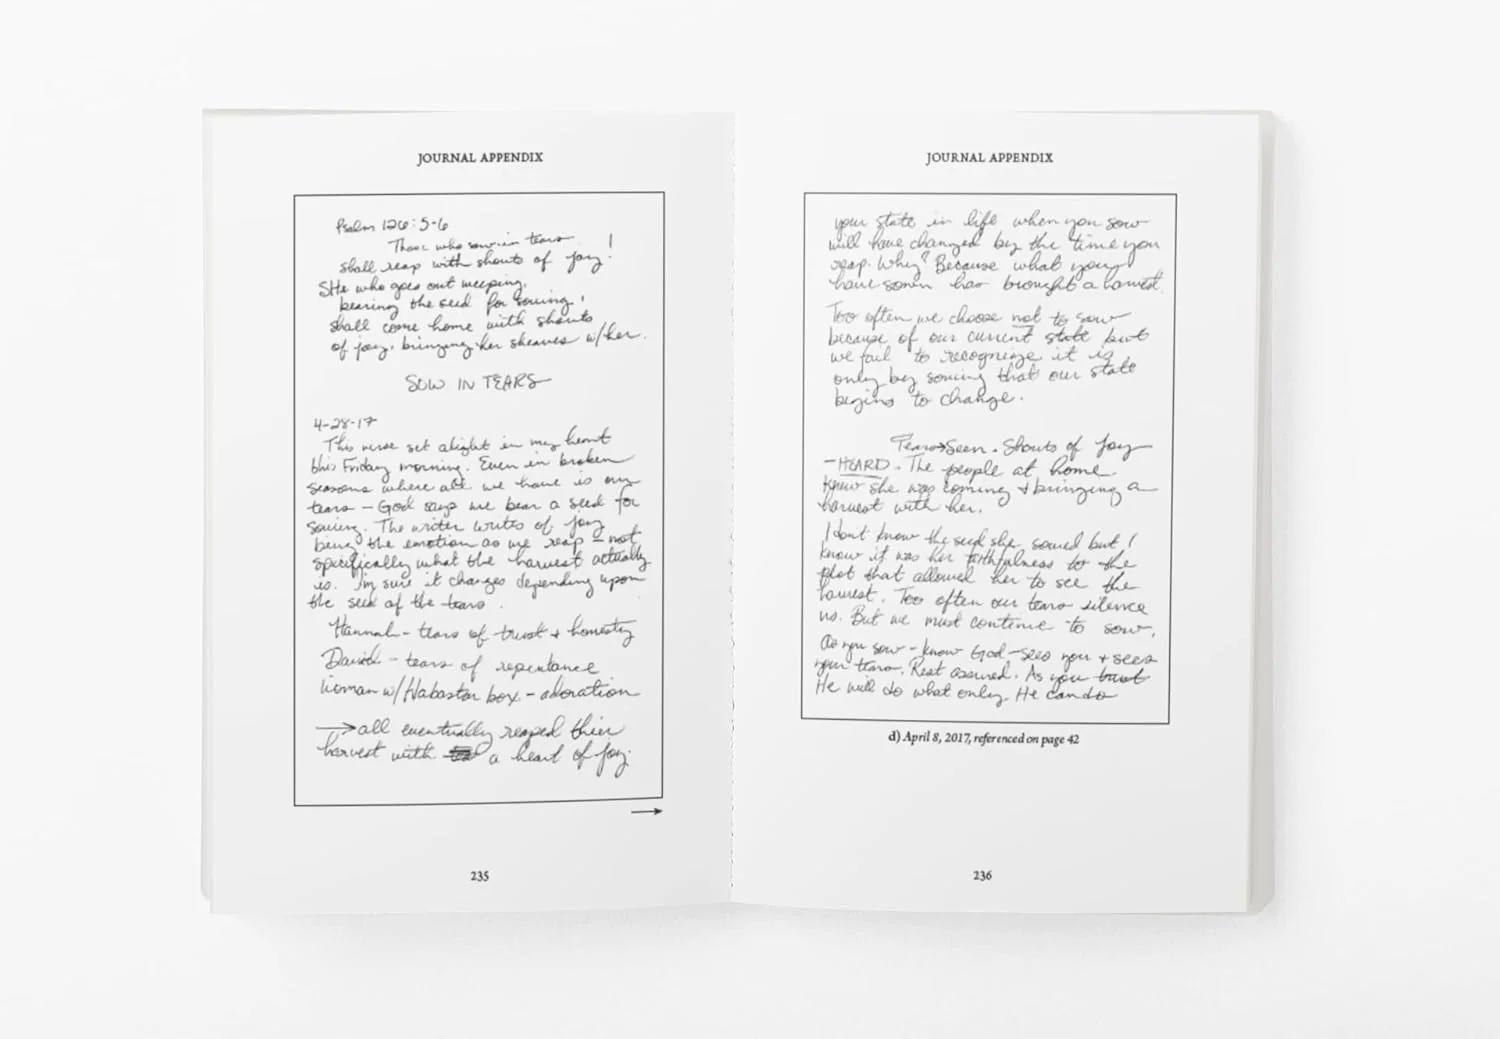 JOURNAL APPENDIX
Psalm 126:5-6
Those who sow in tears
shall reap with shouts of joy!
SHe who goes out weeping,
bearing the seed for sowing,
shall come home with shouts
of joy, bringing her sheaves w/her.
SOW IN TEARS
4-28-17
This verse set alight in my heart
this Friday morning. Even in broken
seasons where all we have is our
tears – God says we bear a seed for
sowing. The writer writes of joy
being the emotion as we reap – not
specifically what the harvest actually
is. I'm sure it changes depending upon
the seed of the tears.
Hannah – tears of trust + honesty
David – tears of repentance
Woman w/Alabastar box – adoration
→ all eventually reaped their
harvest with a heart of joy.
→
235
JOURNAL APPENDIX
your state in life when you sow
will have changed by the time you
reap. Why? Because what you
have sown has brought a harvest.
Too often we choose not to sow
because of our current state but
we fail to recognize it is
only by sowing that our state
begins to change.
Tears→Seen. Shouts of Joy
– HEARD. The people at home
knew she was coming + bringing a
harvest with her.
I don't know the seed she sowed but I
know it was her faithfulness to the
plot that allowed her to see the
harvest. Too often our tears silence
us. But we must continue to sow.
As you sow – know God – sees you + sees
your tears. Rest assured. As you trust
He will do what only He can do
d) April 8, 2017, referenced on page 42
236